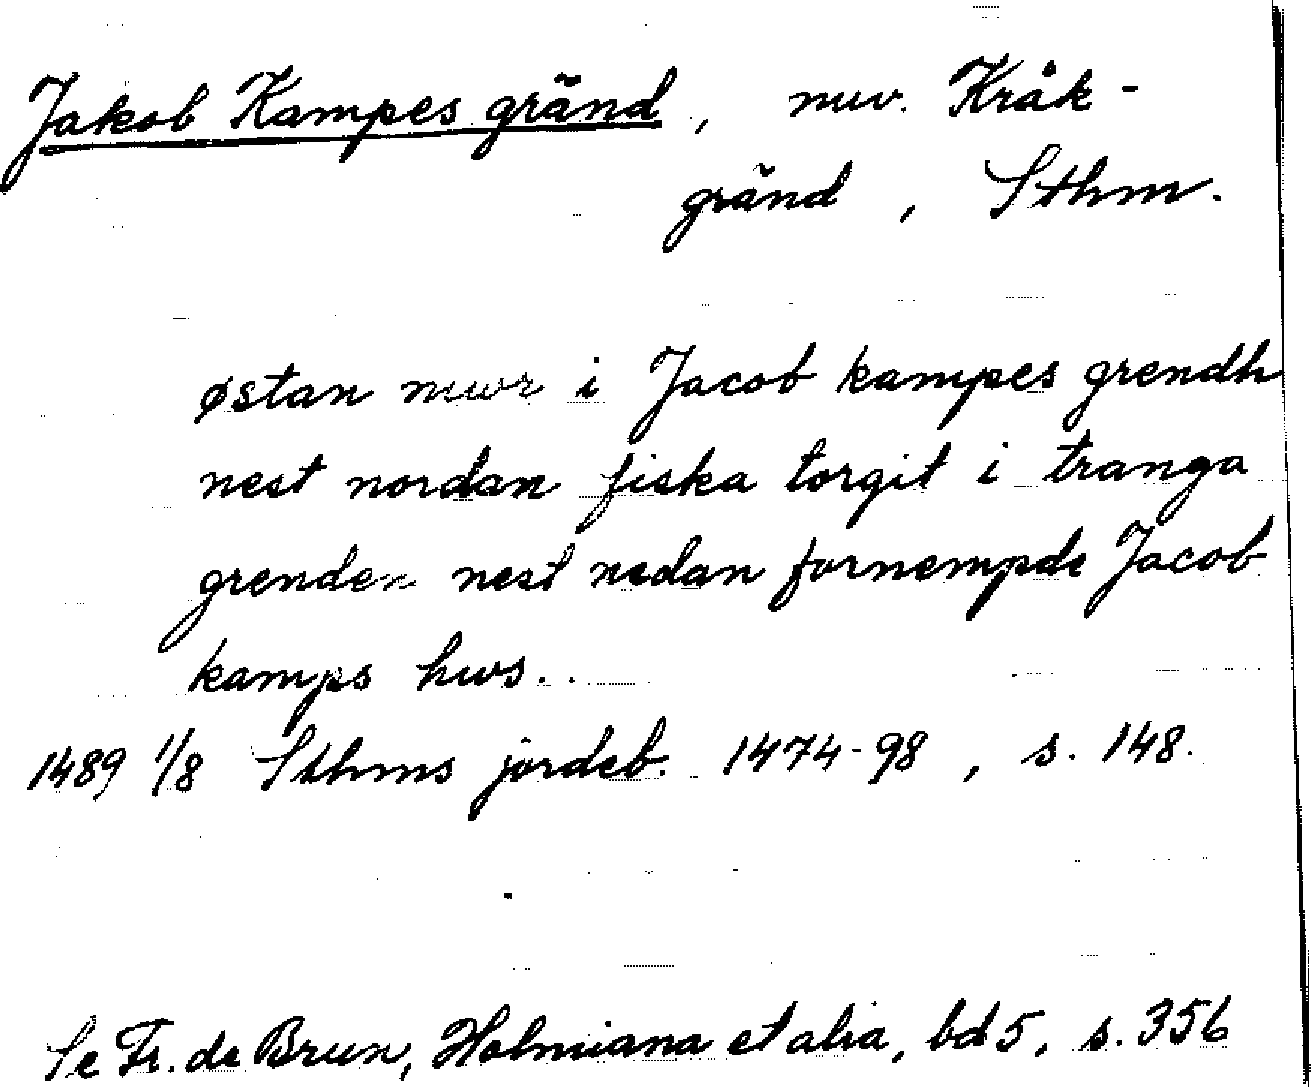 Jakob Kampes gränd, nuv. Kråk-
gränd, Sthm.
østan mwr i Jacob kampes grendh
nest nordan fiska torgit i tranga
grenden nest nedan fornempde Jacob
kamps hws..
1489 1/8 Sthms jordeb. 1474-98, s. 148.
Se Fr. de Brun, Holmiana et alia, bd 5, s. 356